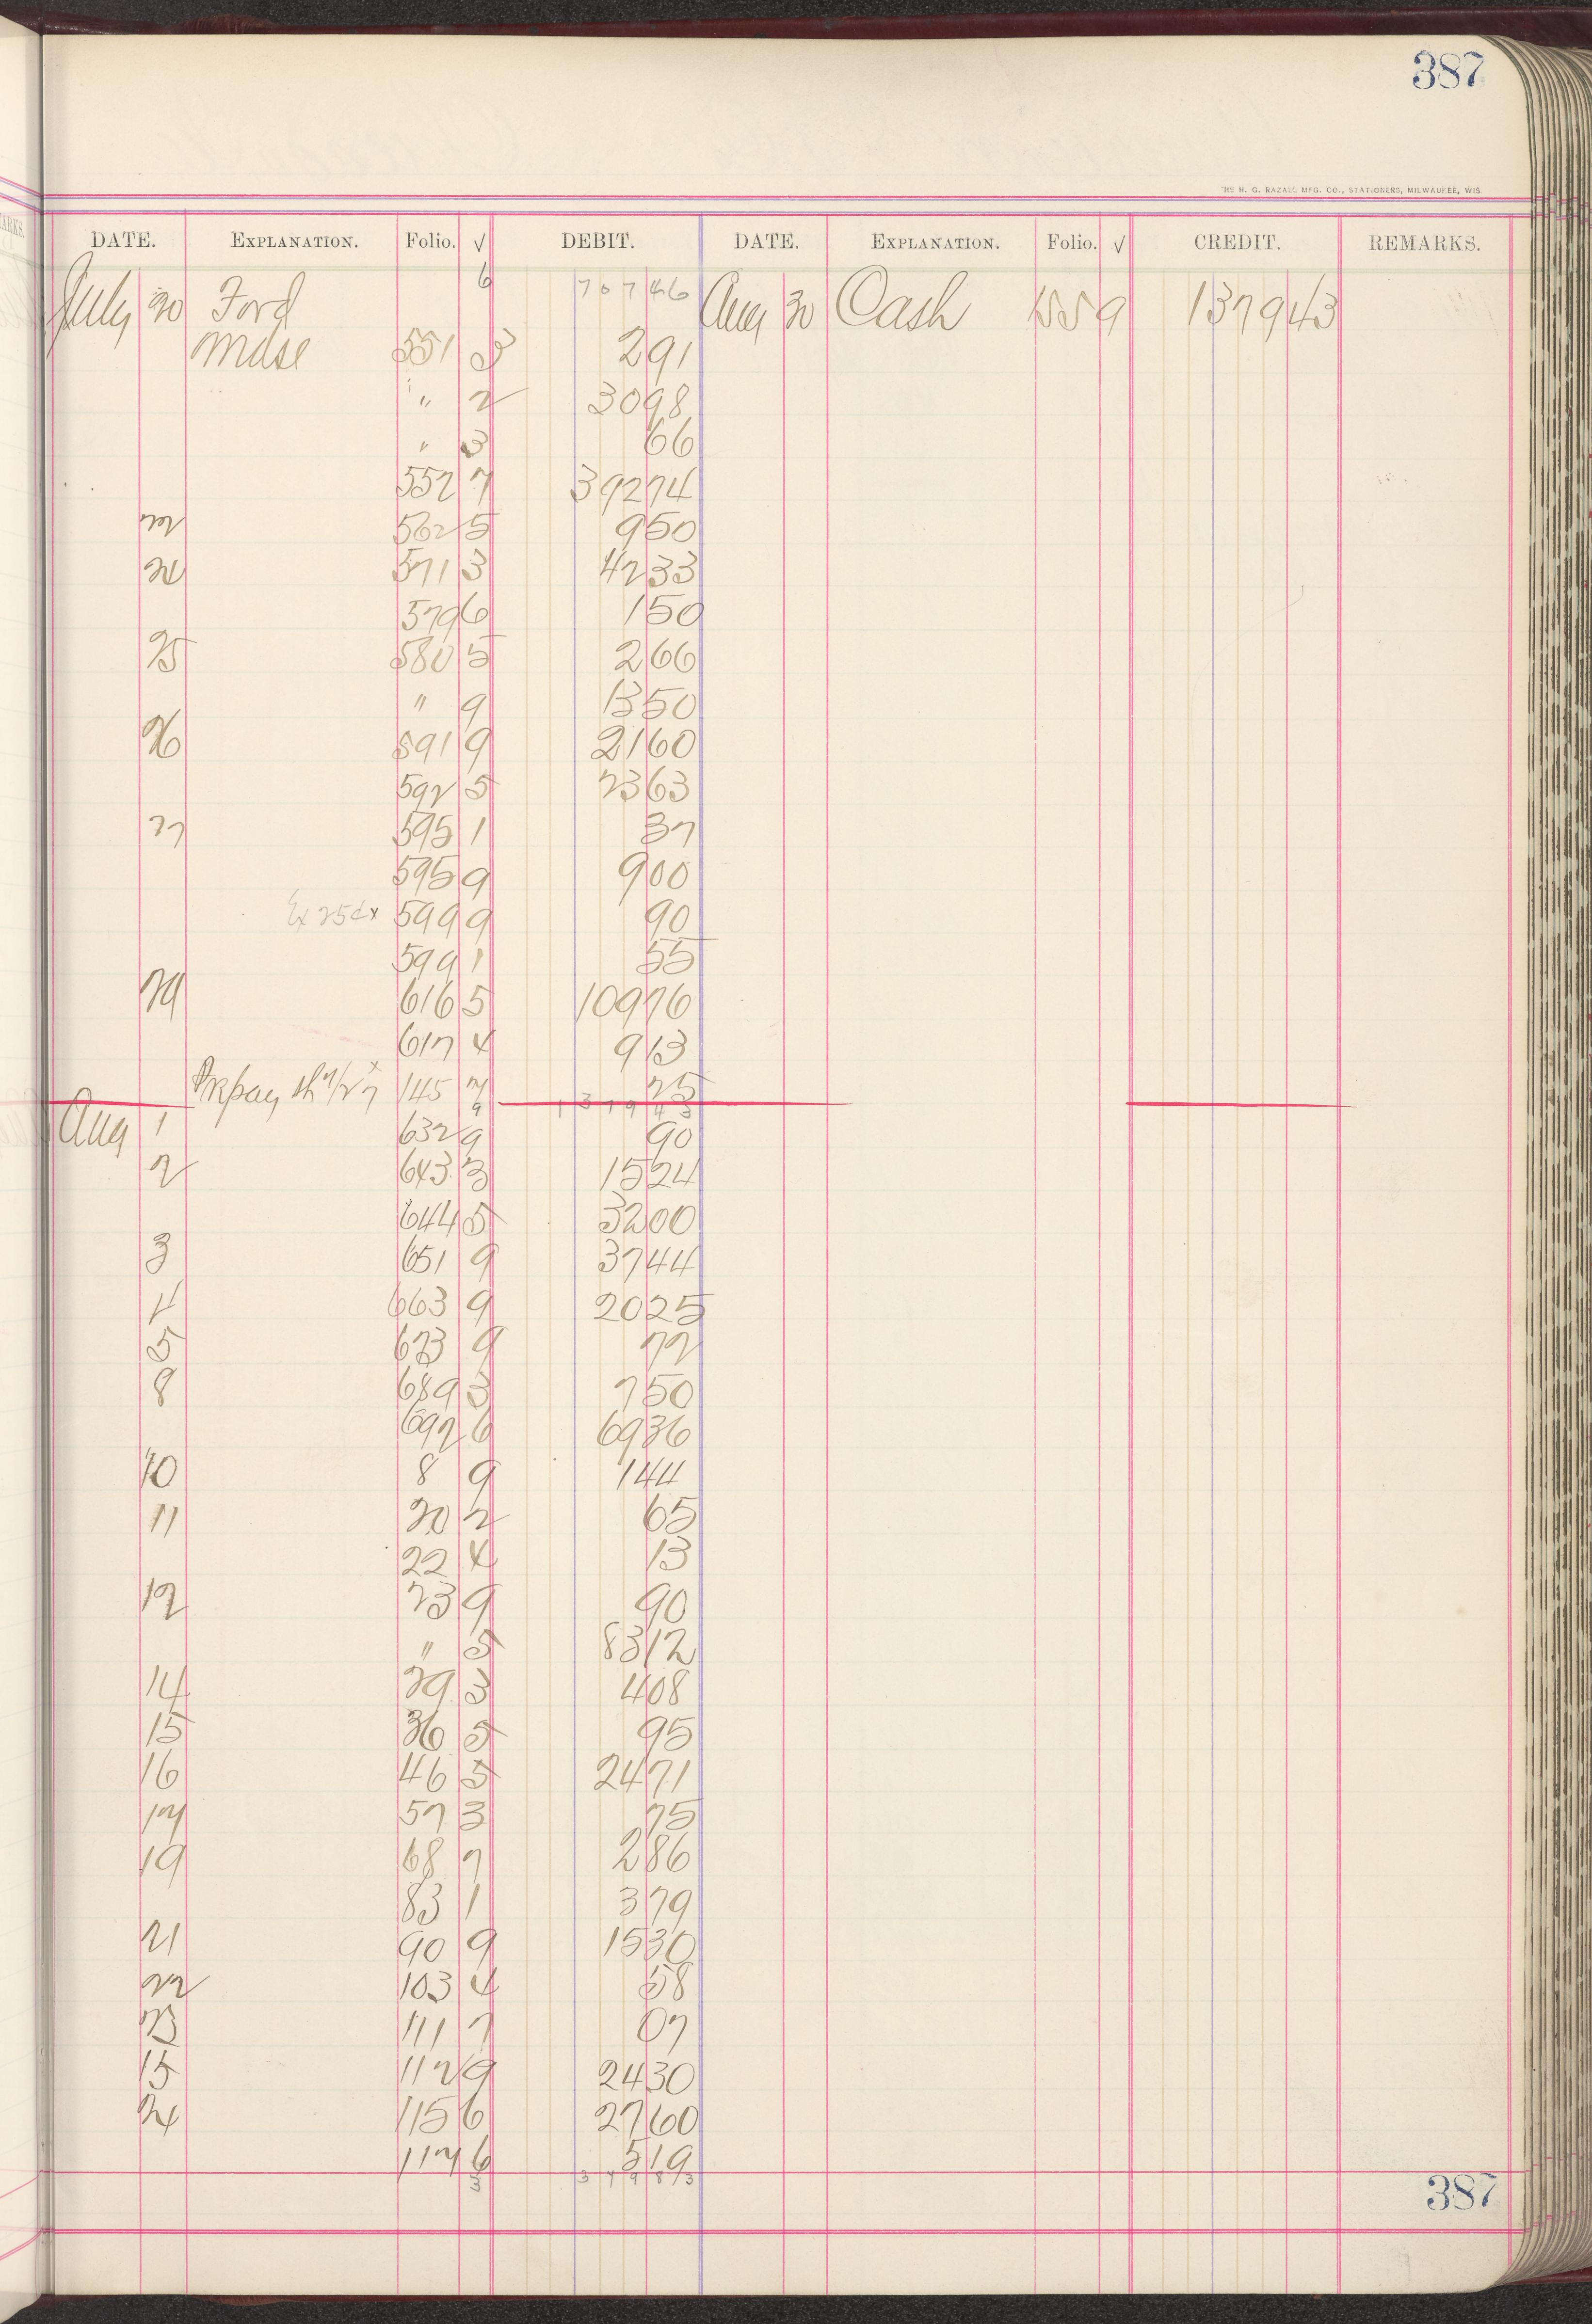 387
THE H. G. RAZALL MFG. CO., STATIONERS, MILWAUKEE, WIS.
DATE. EXPLANATION. Folio. √ DEBIT. DATE. EXPLANATION. Folio. √ CREDIT. REMARKS.
July 20 Ford 6 707 46 Aug 30 Cash 1559 1379 43
Mdse 551 3 2 91
" 2 30 98
" 3 66
552 7 392 74
22 562 5 9 50
24 571 3 42 33
579 6 1 50
25 580 5 2 66
" 9 13 50
26 591 9 21 60
592 5 23 63
27 595 1 37
595 9 9 00
Ex 25¢x 599 9 90
599 1 55
29 616 5 109 76
617 4 9 13
145 7 25
9 1379 43
Aug 1 632 9 90
2 643 3 15 24
644 5 32 00
3 651 9 37 44
4 663 9 20 25
5 673 9 72
8 689 3 7 50
692 6 69 36
10 8 9 1 44
11 20 2 65
22 4 13
12 23 9 90
" 5 83 12
14 29 3 4 08
15 36 5 95
16 46 5 24 71
17 57 3 75
19 68 7 2 86
83 1 3 79
21 90 9 15 30
22 103 4 58
23 111 7 07
15 112 9 24 30
24 115 6 27 60
117 6 5 19
3 349 83
387